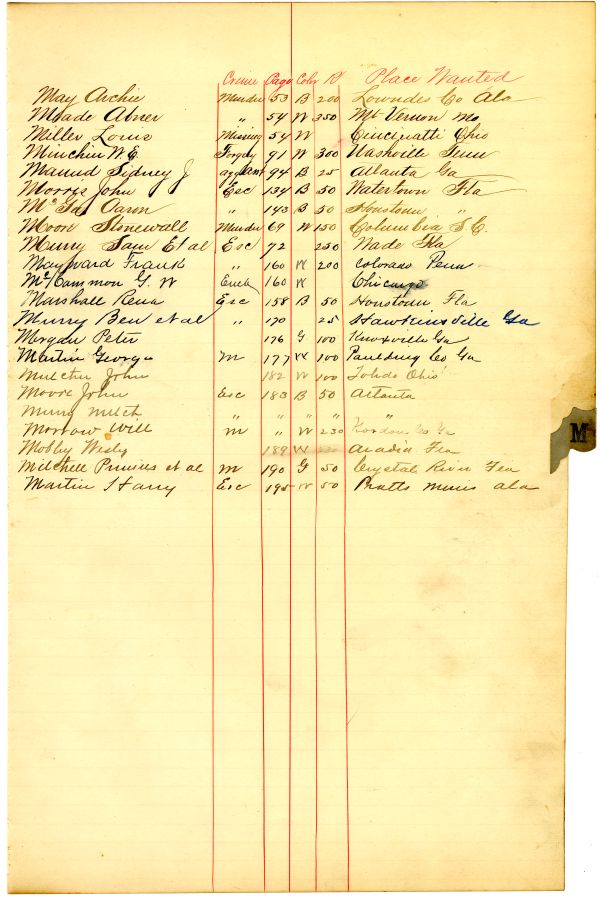 Crime Page Color R Place Wanted
May Archie Murder 53 B 200 Lowndes Co Ala
Meade Abner " 54 W 350 Mt Vernon Mo
Miller Louis Missing 54 W Cincinatti Ohio
Minchin W.E. Forgery 91 W 300 Nashville Tenn
Sidney J 94 B 25 Atlanta Ga
Morris John Esc 134 B 50 Watertown Fla
Aaron " 143 B 50 Houstown "
Moore Stonewall Murder 69 W 150 Columbia S.C.
Murry Sam Et al Esc 92 250 Wade Fla
Mayward Frank " 160 W 200 Colorado Penn
McCammon G. W 160 W Chicago
Marshall Rena Esc 158 B 50 Houstown Fla
Murry Ben et al " 170 25 Hawkinsville Ga
Morgan Peter 176 G 100 Knoxville Ga
Martin George M 177 W 100 Paulding Co Ga
John 182 W 100 Toledo Ohio
Moore John Esc 183 B 50 Atlanta
Murry Mitch " " " " "
Morrow Will M " W 230 Gordon Co Ga
Mobby Wesly 189 W Acadia Fla
Mitchell et al M 190 G 50 Crystal River Fla
Martin Harry Esc 195 W 50 Pratts Mines Ala
M